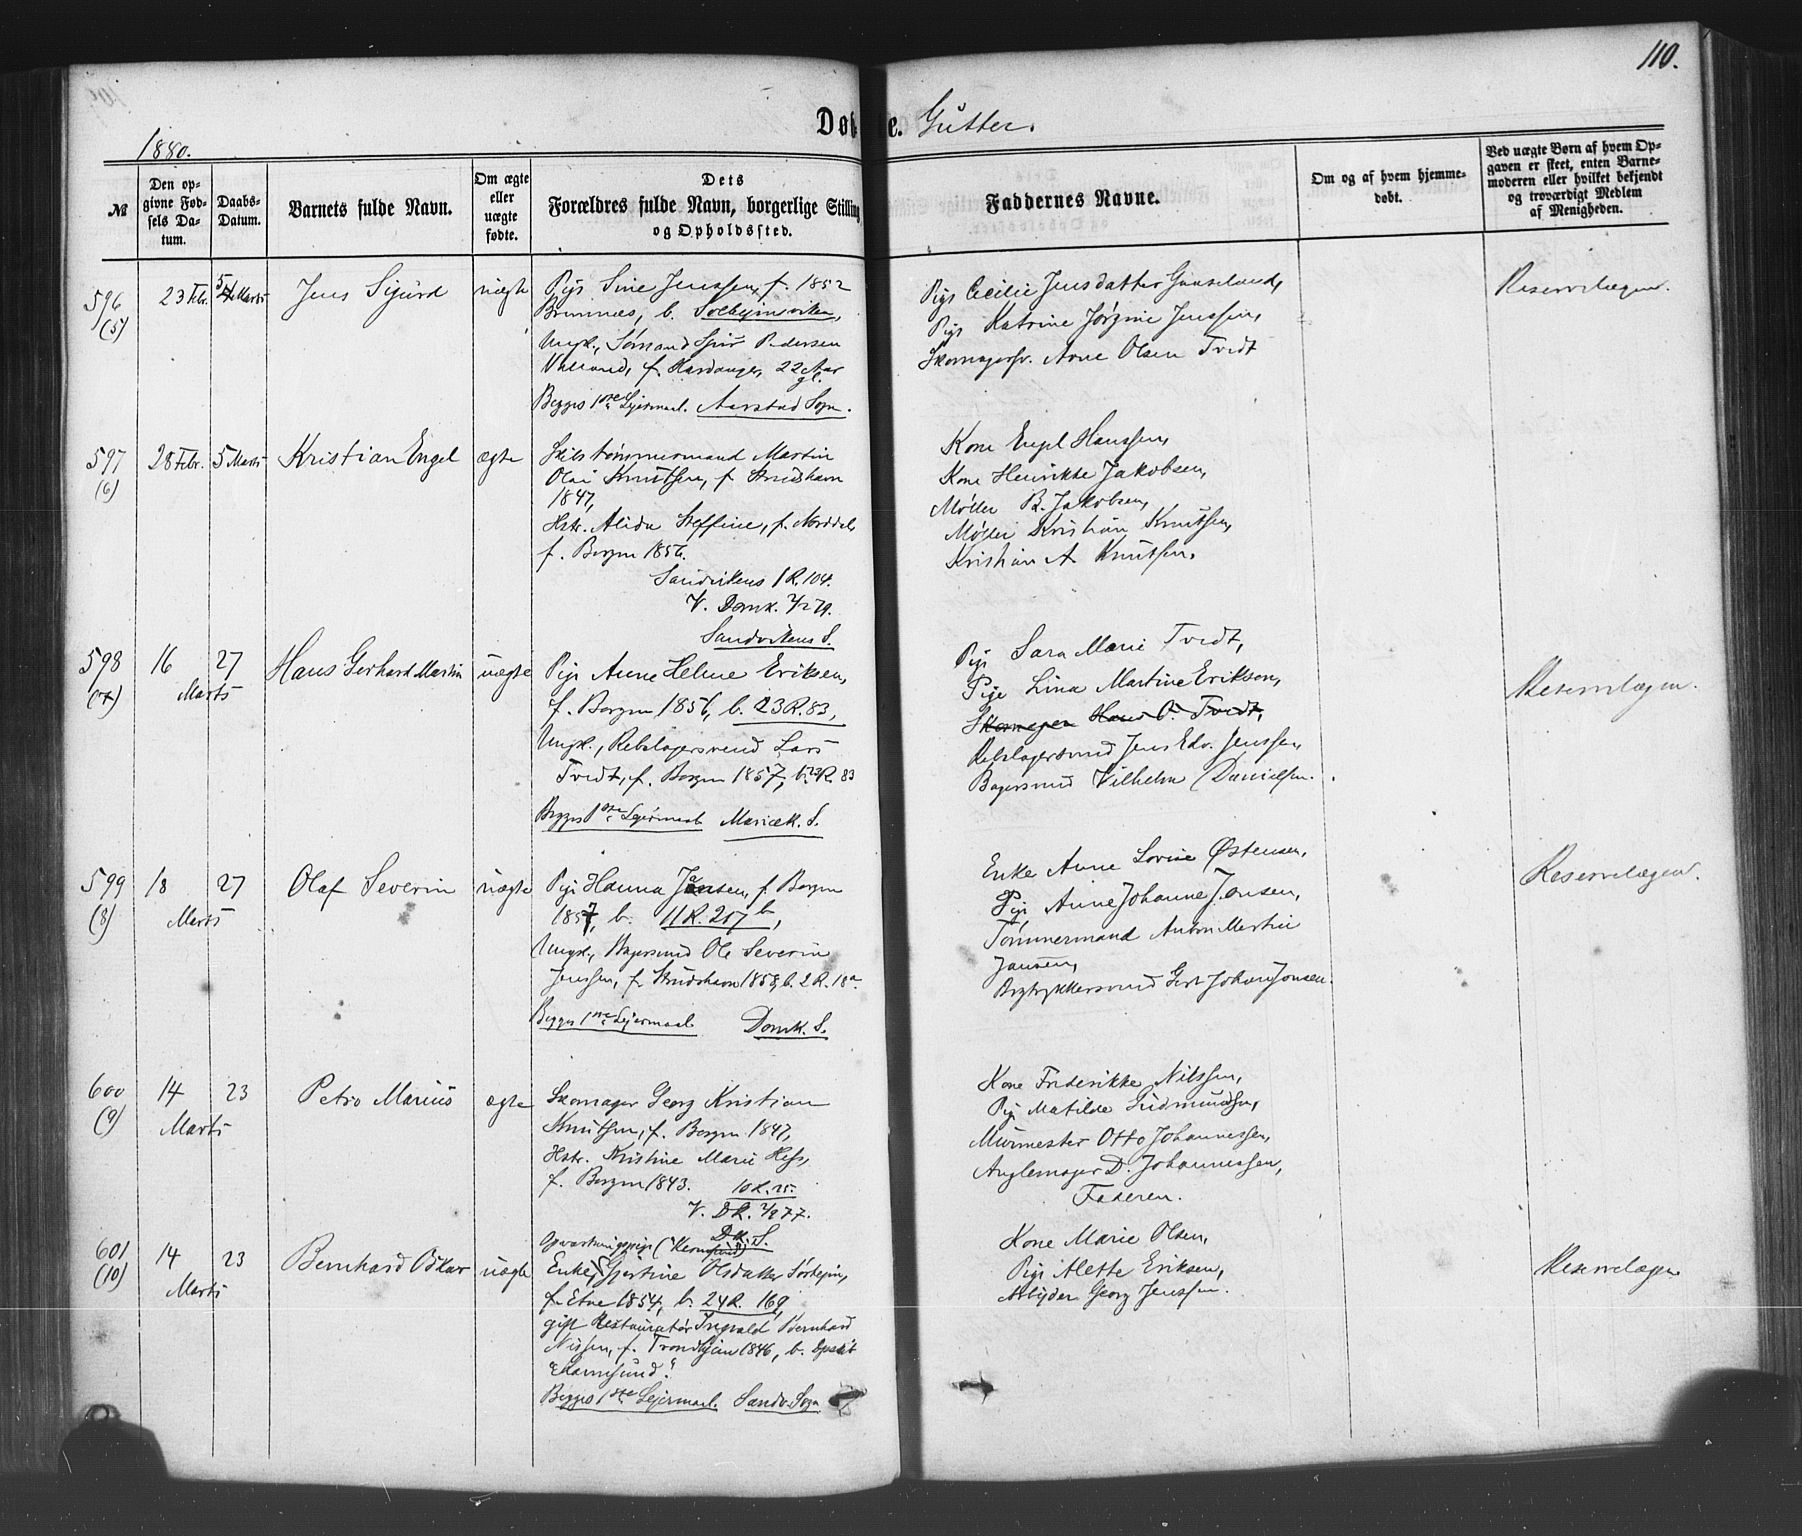 110.
Døbte. Gutter.
1880.
№
Den op-
givne Fød-
sels Da-
tum.
Daabs-
Datum.
Barnets fulde Navn.
Om ægte
eller
uægte
fødte.
Dets
Forældres fulde Navn, borgerlige Stilling
og Opholdssted.
Faddernes Navne.
Om og af hvem hjemme-
døbt.
Ved uægte Børn af hvem Op-
gaven er skeet, enten Barne-
moderen eller hvilket bekjendt
og troværdigt Medlem
af Menigheden.
596
(5)
23 Febr.
5 Marts
Jens Sigurd
uægte
Pige Sine Jenssen, f. 1852
Bremnæs, b. Solheimsviken,
Ungk., Sømand Sjur Pedersen
f. Hardanger, 22 Aar
gl.
Begges 1ste Lejermaal. Aarstad Sogn.
Pige Cecilie Jensdatter
Pige Katrine Jørgine Jenssen,
Skomagersv. Arne Olsen Tvedt
Reservelægen.
597
(6)
28 Febr.
5 Marts
Kristian Engel
ægte
Skibstømmermand Martin
Olai Knutsen, f. Strudshavn
1847,
Hstr. Alida Steffine, f. Norddal,
f. Bergen 1856.
Sandvikens 1 R. 104.
V. Domk. 2/2 79.
Sandvikens S.
Kone Engel Hanssen,
Kone Henrikke Jakobsen,
Møller B. Jakobsen,
Møller Kristian Knutsen,
Kristian A Knutsen.
598
(7)
16
27
Marts
Hans Gerhard Martin
uægte
Pige Anne Helene Eriksen,
f. Bergen 1856, b. 23 R. 83,
Ungk., Rebslagersvend Lars
Tvedt, f. Bergen 1857, b. 23 R. 83
Begges 1ste Lejermaal Mariæk. S.
Pige Sara Marie Tvedt,
Pige Lina Martine Eriksen,
Skomager Hans O. Tvedt,
Rebslagersvend Jens Edv. Jenssen,
Bagersvend Vilhelm Danielsen.
Reservelægen.
599
(8)
18
27
Marts
Olaf Severin
uægte
Pige Hanna Jansen, f. Bergen
1857, b. 11 R. 207 b,
Ungk., Bagersvend Ole Severin
Jenssen, f. Strudshavn 1858, b. 2 R. 18a.
Begges 1ste Lejermaal Domk. S.
Enke Anne Lovise Østensen,
Pige Anne Johanne Jansen,
Tømmermand Anton Martin
Jansen,
Bogtrykkersvend Gert Johan Jansen.
Reservelægen.
600
(9)
14
23
Marts
Petro Marius
ægte
Skomager Georg Kristian
Knutsen, f. Bergen 1847,
Hstr. Kristine Marie Hess,
f. Bergen 1843. 10 R. 25.
V. DK. 2/8 77.
DK. S.
Kone Frederikke Nilssen,
Pige Matilde Gudmundsen,
Murmester Otto Johannessen,
Anglemager D. Johannessen,
Faderen.
601
(10)
14
23
Marts
Bernhard Oskar
uægte
Opvartningspige ("Karmsund")
Enke Gjertine Olsdatter
f. Etne 1854, b. 24 R. 169,
gift Restauratør Ingvald Bernhard
Nissen, f. Trondhjem 1846, b. Dpskib
"Karmsund".
Begges 1ste Lejermaal. Sandv. Sogn
Kone Marie Olsen,
Pige Alette Eriksen,
Arbejder Georg Jenssen.
Reservelægen